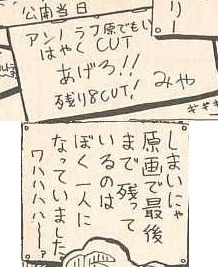 公開当日
リー
アンノ ラフ原でもい
はやくCUT
あげろ!!
残り8CUT!
みや
ギギギ
しまいにゃ
原画で最後
まで残って
いるのは
ぼく一人に
なっていました
ワハハハハ〜?